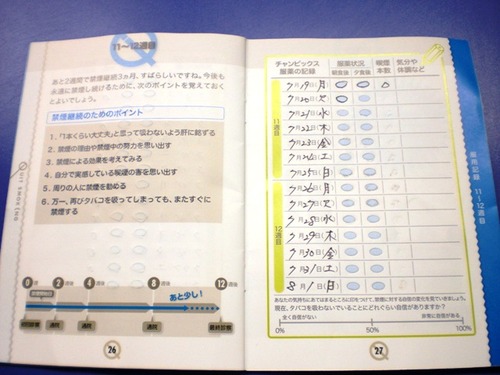 11〜12週目
あと2週間で禁煙継続3カ月、すばらしいですね。今後も
永遠に禁煙し続けるために、次のポイントを覚えておく
とよいでしょう。
禁煙継続のためのポイント
1.「1本くらい大丈夫」と思って吸わないよう肝に銘ずる
2. 禁煙の理由や禁煙中の努力を思い出す
3. 禁煙による効果を考えてみる
4. 自分で実感している喫煙の害を思い出す
5. 周りの人に禁煙を勧める
6. 万一、再びタバコを吸ってしまっても、またすぐに
禁煙する
QUIT SMOKING
0週 2週間 4週間 8週間 12週間
あと少し!
通院 通院 通院 最終診察
26
チャンピックス
服薬の記録
服薬状況
朝食後 夕食後
喫煙
本数
気分や
体調など
11週目
7月19日(月) 0
7月20日(火)
7月21日(水)
7月22日(木)
7月23日(金)
7月24日(土)
7月25日(日)
12週目
7月26日(月)
7月27日(火)
7月28日(水)
7月29日(木)
7月30日(金)
7月31日(土)
8月1日(日)
あなたの気持ちにあてはまるところに印をつけて、禁煙に対する自信の変化を見ていきましょう。
現在、タバコを吸わないでいることにどれくらい自信がありますか?
全く自信がない 非常に自信がある
0% 50% 100%
27
服用記録 11・12週目